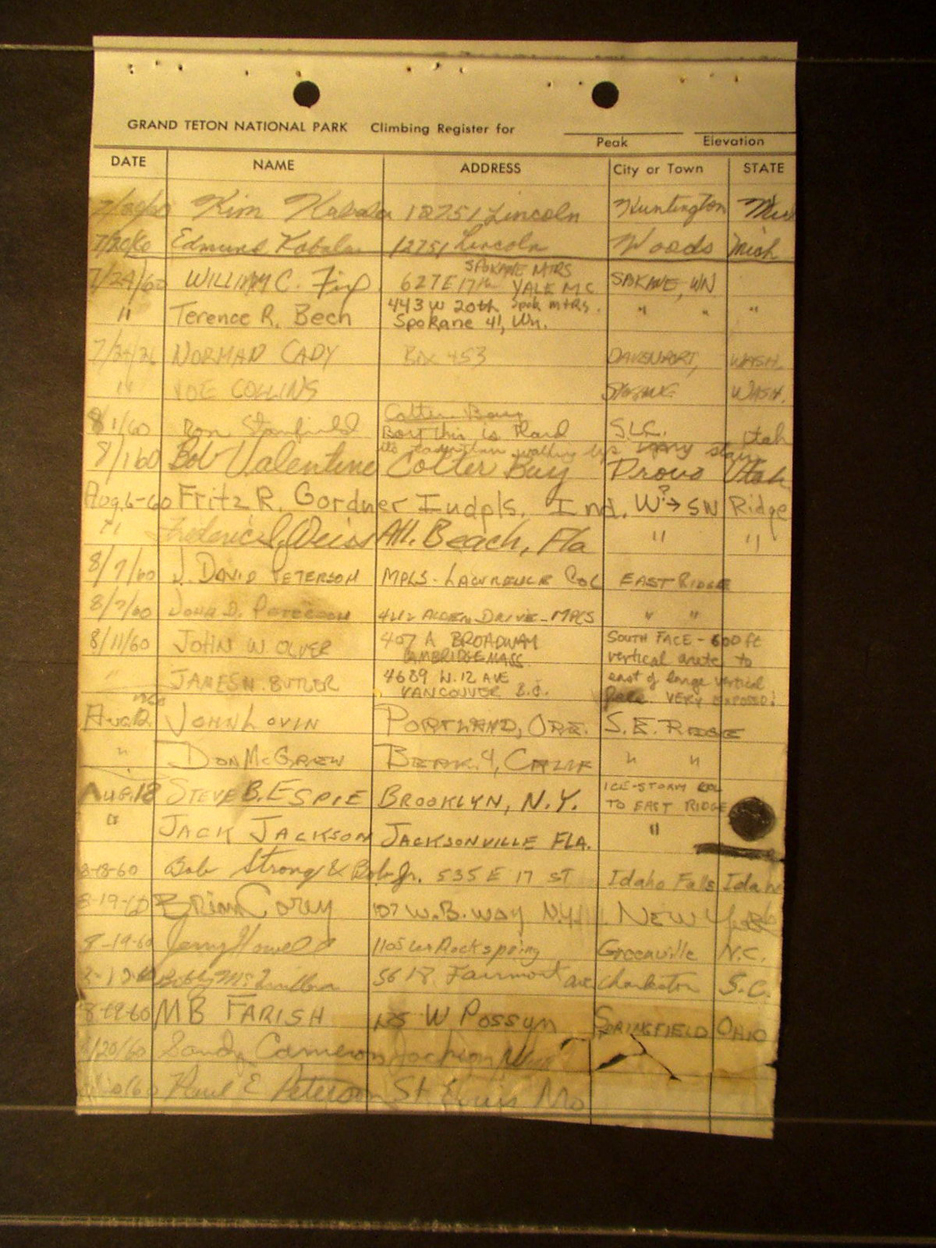 GRAND TETON NATIONAL PARK Climbing Register for
Peak Elevation
DATE NAME ADDRESS City or Town STATE
Kim Kabala 12751 Lincoln Huntington
Edmund Kabala 12751 Lincoln Woods Mich
SPOKANE MTRS
7/29/60 WILLIAM C. Fix 627 E 17th YALE M.C. SPKANE, WN
" Terence R. Bech 443 W 20th Spok mtrs. " " "
Spokane 41, Wn.
NORMAN CADY BOX 453 DAVENPORT, WASH.
" JOE COLLINS WASH.
Colter Bay
8/1/60 Ron Stanfield Boy this is Hard S.L.C. Utah
its easier than walking up stairs
8/1/60 Bob Valentine Colter Bay Provo Utah
Aug 6-60 Fritz R. Gordner Indpls. Ind. W?→ SW Ridge
Beach, Fla " "
8/7/60 J. DAVID PETERSON MPLS - LAWRENCE EAST RIDGE
8/7/60 DRIVE - MPLS " "
8/11/60 JOHN W OLVER 407 A BROADWAY SOUTH FACE - 600 ft
CAMBRIDGE MASS. vertical arete to
" JAMES N. BUTLER 4689 W. 12 AVE east of large vertical
VANCOUVER B.C. face. VERY EXPOSED!
1960
Aug 12, JOHN LOVIN PORTLAND, ORE. S.E. RIDGE
" DON MCGREW BERK. 4, CALIF " "
AUG. 18 STEVE B. ESPIE BROOKLYN, N.Y. ICE-STORM COL
TO EAST RIDGE
" JACK JACKSON JACKSONVILLE FLA. "
8-18-60 Bob Strong & Bob Jr. 535 E 17 ST Idaho Falls Idaho
Brian Corey 107 W. B. WAY N.Y. NEW York
8-19-60 Jerry Howell 1105 Rockspring Greenville N.C.
Bobby 5618 Fairmont ave Charleston S.C.
8-19-60 MB FARISH 125 W POSSYM SPRINGFIELD OHIO
8/20/60 Sandy Cameron Jackson
Paul E Peterson St. Louis Mo